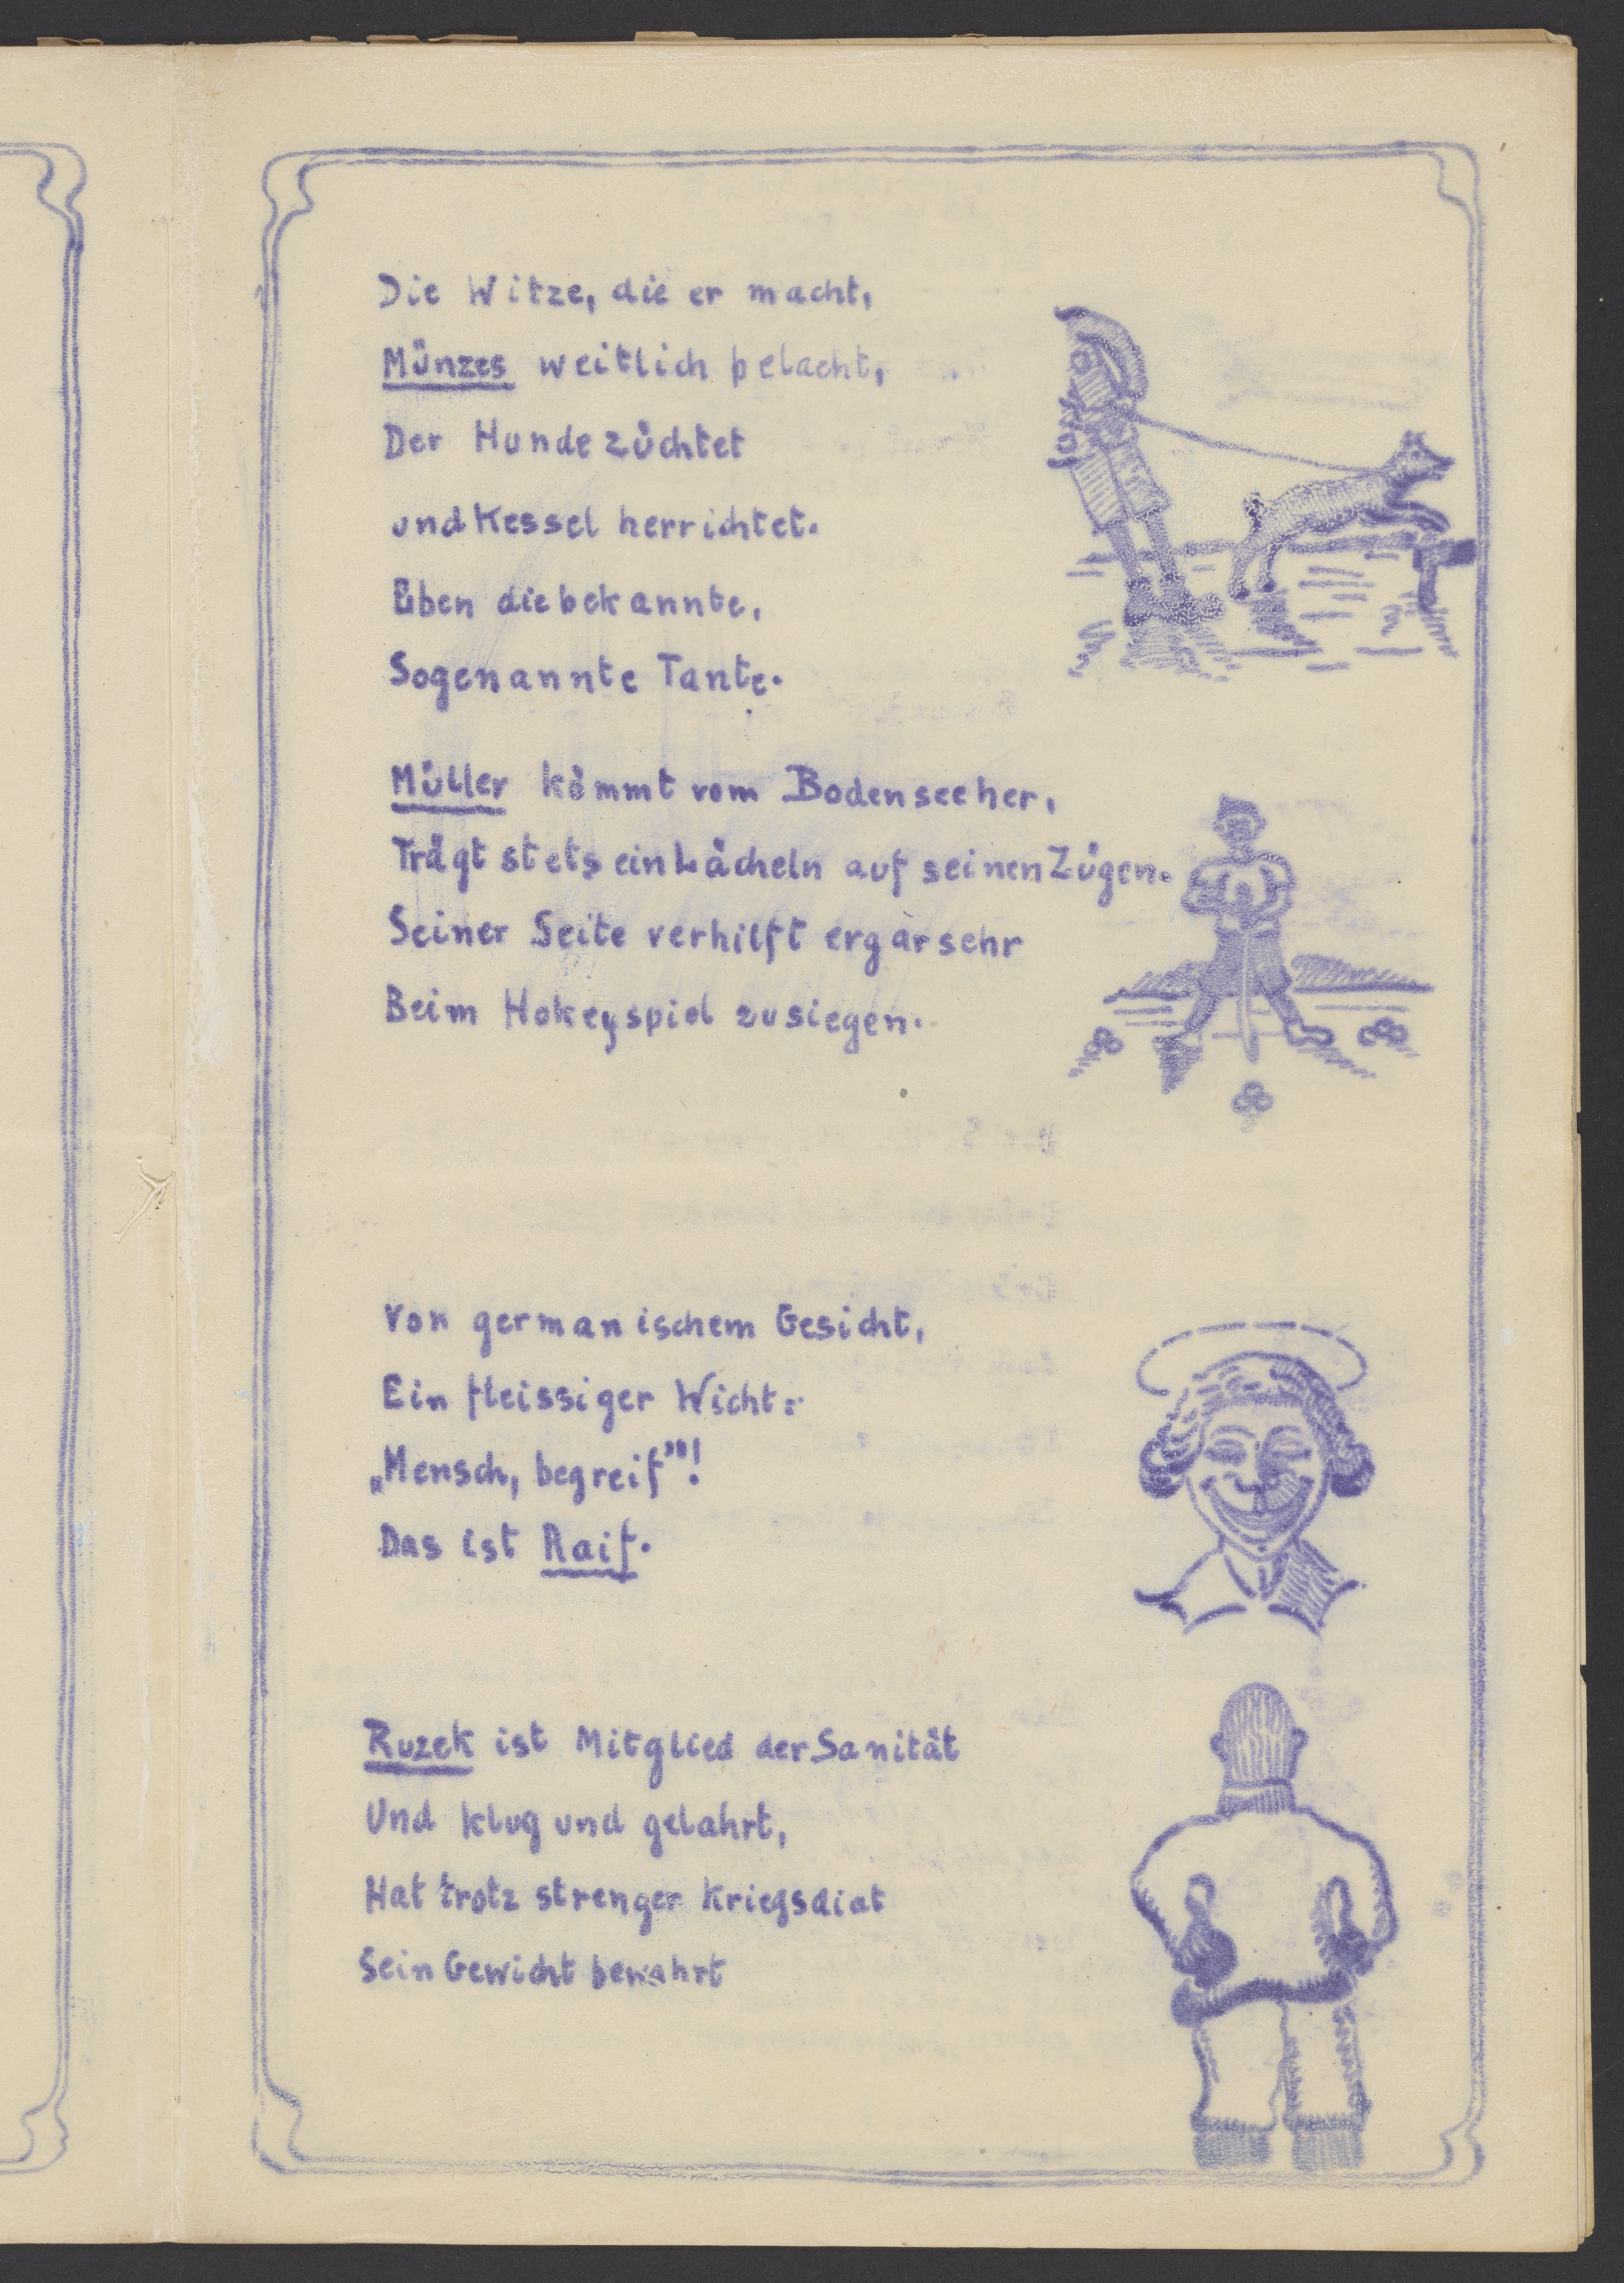 Die Witze, die er macht,
Münzes weitlich belacht,
Der Hunde züchtet
und Kessel herrichtet.
Eben die bekannte,
Sogenannte Tante.
Müller kömmt vom Bodensee her,
Trägt stets ein Lächeln auf seinen Zügen.
Seiner Seite verhilft er gar sehr
Beim Hokeyspiel zu siegen.
Von germanischem Gesicht,
Ein fleissiger Wicht:
„Mensch, begreif”!
Das ist Raif.
Ruzek ist Mitglied der Sanität
Und klug und gelahrt,
Hat trotz strenger Kriegsdiat
Sein Gewicht bewahrt